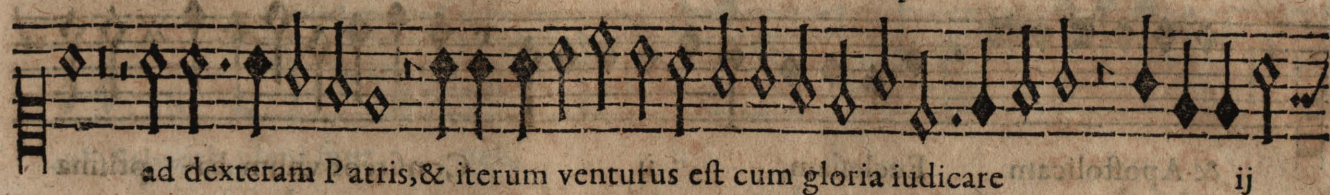 ad dexteram Patris,& iterum venturus eſt cum gloria iudicare ij